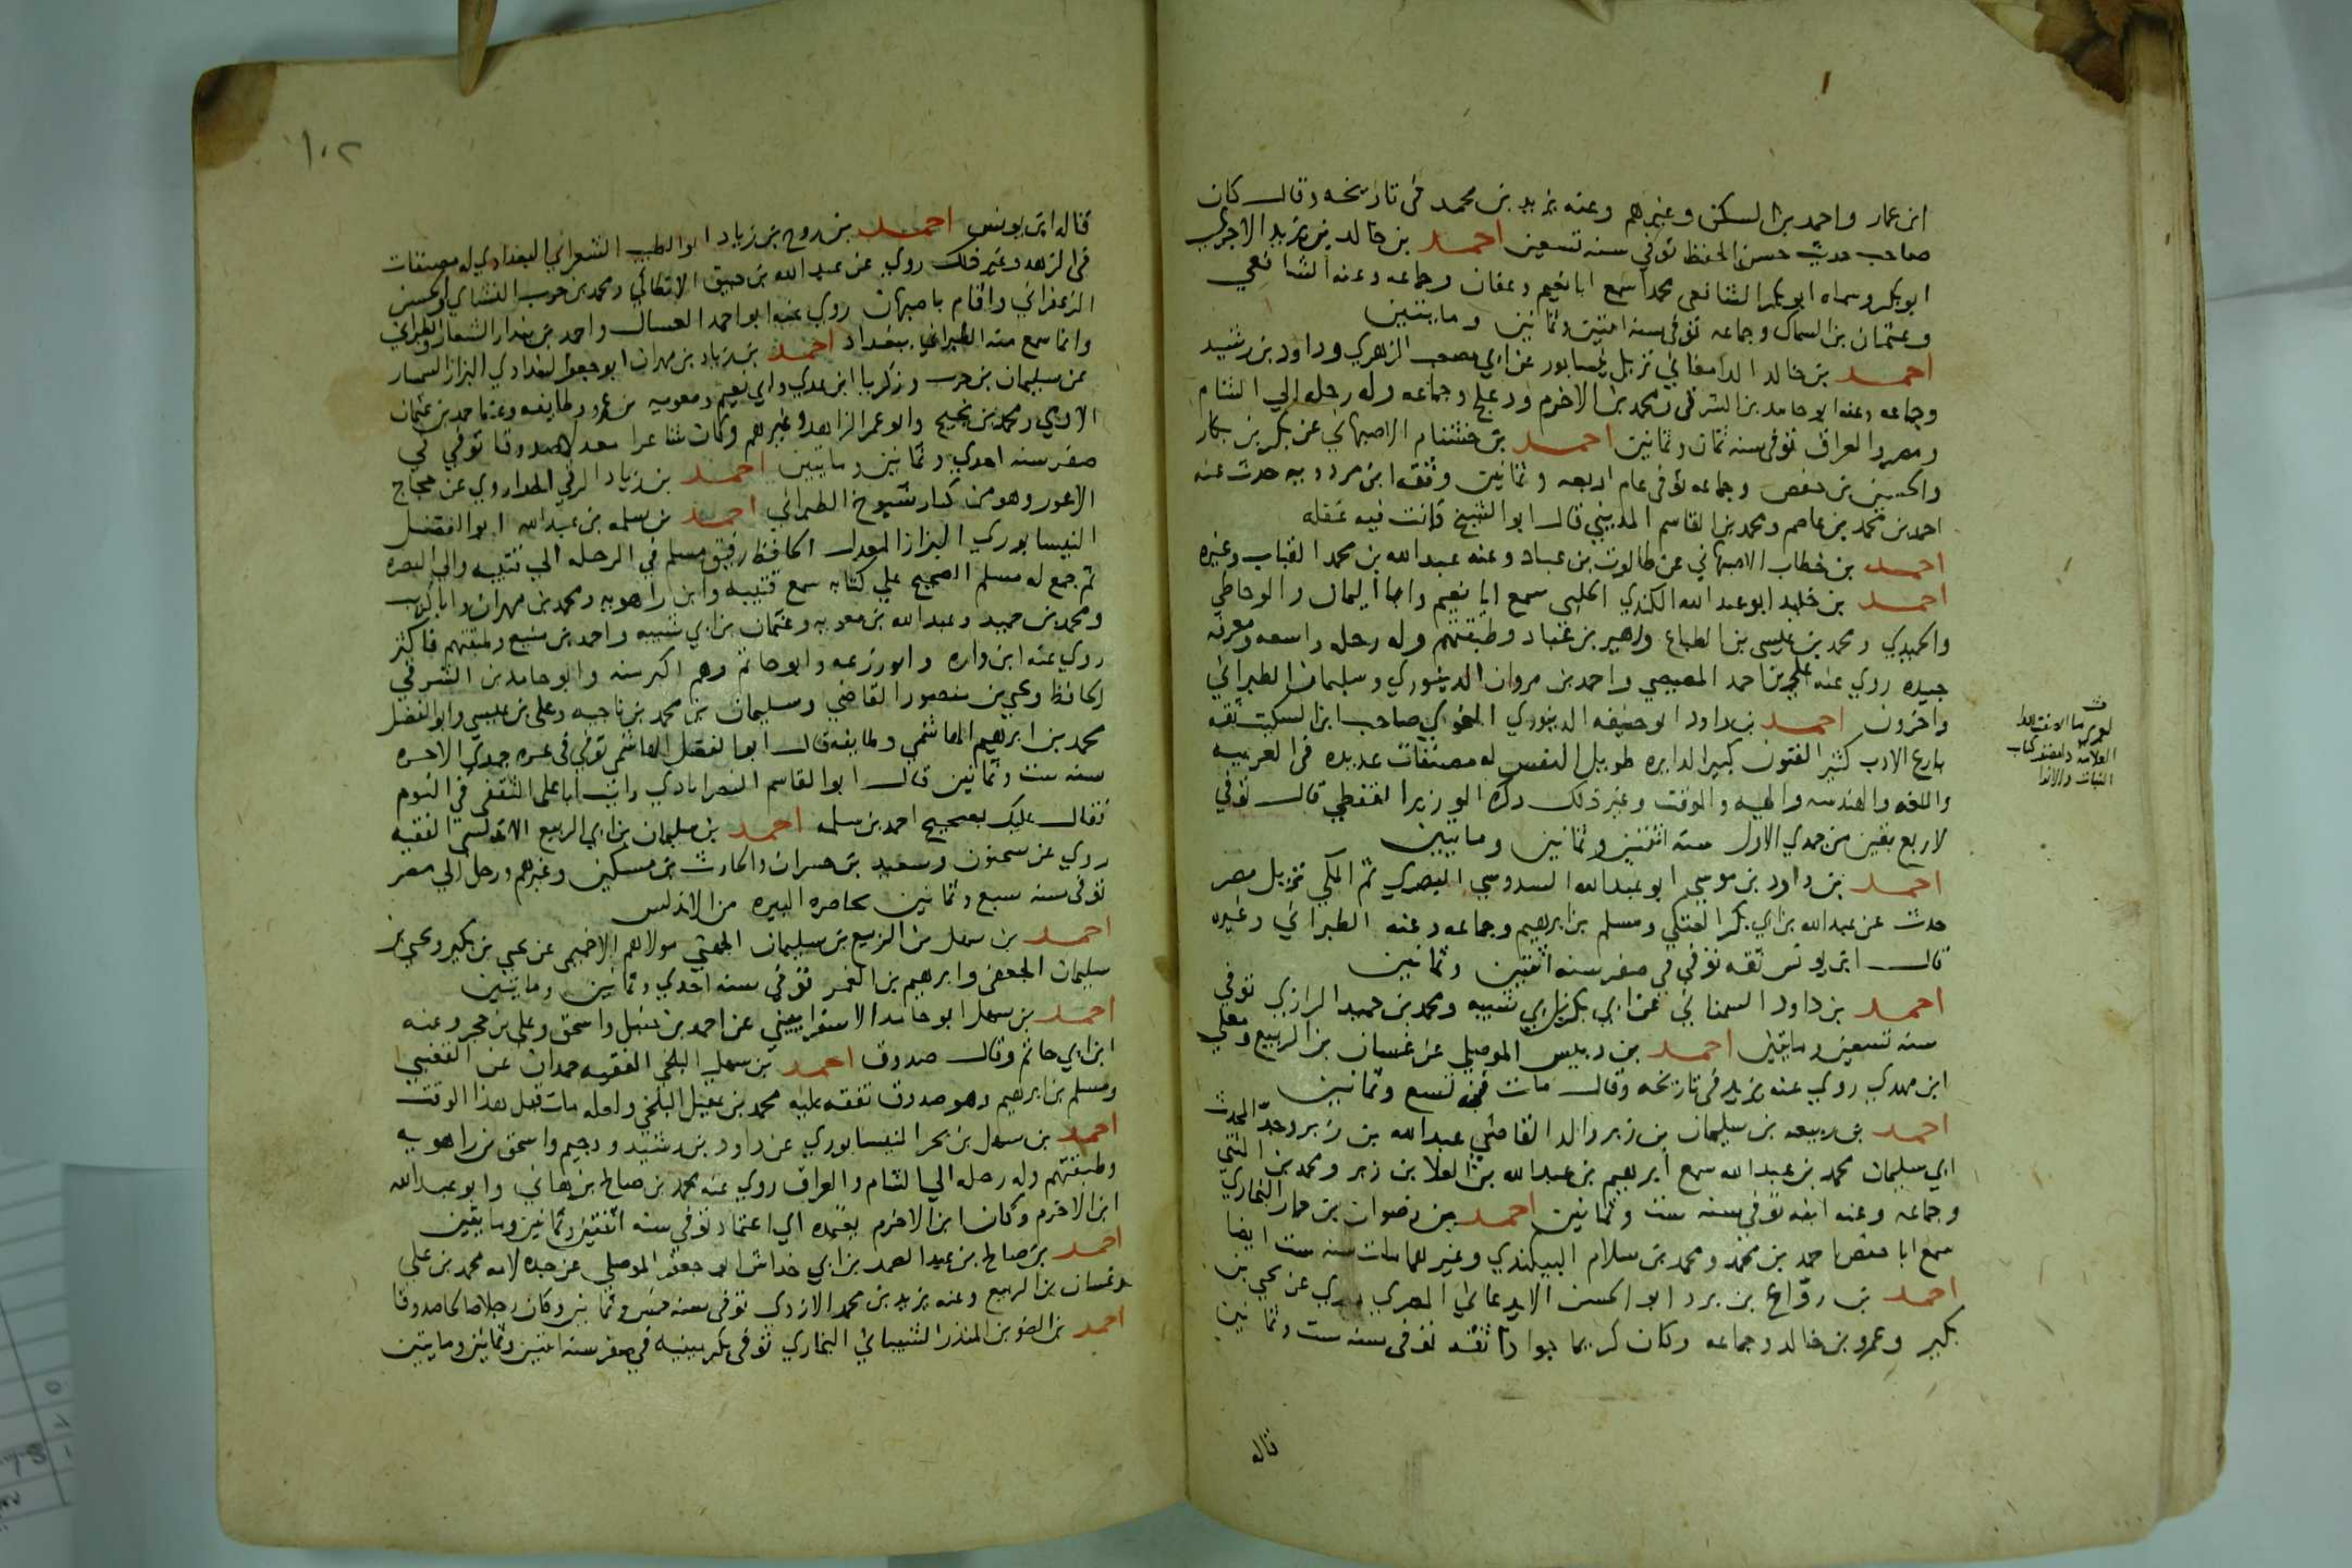 ابن عمار واحمد بن السكن وغيرهم وعنه يزيد بن محمد فى تاريخه وقال كان
صاحب حديث حسن الحفظ توفي سنه تسعين احمد بن خالد بن يزيد الاجري
ابو بكر وسماه ابو بكر الشافعى محمدا سمع ابا نعيم وعفان وجماعه وعنه الشافعي
وعثمان بن السماك وجماعه توفى سنه اثنتين وثمانين ومايتين
احمد بن خالد الدامغاني نزيل نيسابور عن ابي مصعب الزهري وداود بن رشيد
وجماعه وعنه ابو حامد بن الشرقى ومحمد بن الاخرم ودعلج وجماعه وله رحله الي الشام
ومصر والعراق توفى سنه ثمان وثمانين احمد بن خشنام الاصبهاني عن بكر بن بكار
والحسين بن حفص وجماعه توفى عام اربعه وثمانين وثقه ابن مردويه حدث عنه
احمد بن محمد بن عاصم ومحمد بن القاسم المديني قال ابو الشيخ كانت فيه غفله
احمد بن خطاب الاصبهاني عن طالوت بن عباد وعنه عبد الله بن محمد القباب وغيره
احمد بن خليد ابو عبد الله الكندي الحلبى سمع ابا نعيم وابا اليمان والوحاظي
والحميدي ومحمد بن عيسى بن الطباع وزهير بن عباد وطبقتهم وله رحله واسعه ومعرفه
جيده روي عنه علي بن احمد المصيصي واحمد بن مروان الدينوري وسليمان الطبراني
واخرون احمد بن داود ابو حنيفه الدينوري النحوي صاحب ابن السكيت ثقه
بارع الادب كثير الفنون كبير الدايره طويل النفس له مصنفات عديده فى العربيه
واللغه والهندسه والهيه والوقت وغير ذلك ذكره الوزير القفطي قال توفي
لاربع بقين من جمدي الاول سنه اثنتين وثمانين ومايتين
احمد بن داود بن موسى ابو عبد الله السدوسي البصري ثم المكي نزيل مصر
حدث عن عبد الله بن ابي بكر العتكي ومسلم بن ابرهيم وجماعه وعنه الطبراني وغيره
قال ابن يونس ثقه توفي في صفر سنه اثنتين وثمانين
احمد بن داود السمناني عن ابي بكر بن ابي شيبه ومحمد بن حميد الرازي توفي
سنه تسعين ومايتين احمد بن دبيس الموصلي عن غسان بن الربيع ومعلي
ابن مهدي روي عنه يزيد فى تاريخه وقال مات فى تسع وثمانين
احمد بن ربيعه بن سليمان بن زبر والد القاضي عبد الله بن زبر وجد المحدث
ابي سليمان محمد بن عبد الله سمع ابرهيم بن عبد الله بن العلا بن زبر ومحمد بن المثني
وجماعه وعنه ابنه توفى سنه ست وثمانين احمد بن رضوان بن حمار البخاري
سمع ابا حفص احمد بن محمد ومحمد بن سلام البيكندي وغيرهما مات سنه ست ايضا
احمد بن رواع بن برد ابو الحسن الايدعاني المصري روي عن يحيي بن
بكير وعمرو بن خالد وجماعه وكان كريما جوادا ثقه توفى سنه ست وثمانين
قاله
العلامه
١٠٢
قاله ابن يونس احمد بن روح بن زياد ابو الطيب الشعراني البغدادي له مصنفات
فى الزهد وغير ذلك روي عن عبد الله بن خبيق الانطاكي ومحمد بن حرب النشاي والحسن
الزعفراني واقام باصبهان روي عنه ابو احمد العسال واحمد بن بندار الشعار والطبراني
وانما سمع منه الطبراني ببغداد احمد بن زياد بن مهران ابو جعفر البغدادي البزاز السمسار
عن سليمان بن حرب وزكريا ابن عدي وابي نعيم ومعويه بن عمرو وطايفه وعنه احمد بن عثمان
الادمي ومحمد بن نجيح وابو عمر الزاهد وغيرهم وكان شاعرا معدلا صدوقا توفي في
صفر سنه احدي وثمانين ومايتين احمد بن زياد الرقي الحذا روي عن حجاج
الاعور وهو من كبار شيوخ الطبراني احمد بن سلمه بن عبد الله ابو الفضل
النيسابوري البزاز المعدل الحافظ رفيق مسلم في الرحله الي قتيبه والي البصره
ثم جمع له مسلم الصحيح علي كتابه سمع قتيبه وابن راهويه ومحمد بن مهران وابا كريب
ومحمد بن حميد وعبد الله بن معويه وعثمان بن ابي شيبه واحمد بن منيع وطبقتهم فاكثر
روي عنه ابن واره وابو زرعه وابو حاتم وهم اكبر منه وابو حامد بن الشرقي
الحافظ ويحيى بن منصور القاضي وسليمان بن محمد بن ناجيه وعلى بن عيسى وابو الفضل
محمد بن ابرهيم الهاشمي وطايفه قال ابو الفضل الهاشمي توفي فى غره جمدي الاخره
سنه ست وثمانين قال ابو القاسم النصراباذي رايت ابا على الثقفى في النوم
فقال عليك بصحيح احمد بن سلمه احمد بن سليمان بن ابي الربيع الاندلسى الفقيه
روي عن سحنون وسعيد بن حسان والحارث بن مسكين وغيرهم ورحل الي مصر
توفى سنه سبع وثمانين بحاضره البيره من الاندلس
احمد بن سهل بن الربيع بن سليمان الجهني مولاهم الاخميمى عن يحيي بن بكير ويحيي بن
سليمان الجعفى وابرهيم بن الغمر توفى سنه احدي وثمانين ومايتين
احمد بن سهل ابو حامد الاسفراييني عن احمد بن حنبل واسحق وعلي بن حجر وعنه
ابن ابي حاتم وقال صدوق احمد بن سهل البلخي الفقيه حمدان عن القعنبي
ومسلم بن ابرهيم وهو صدوق تفقه عليه محمد بن عقيل البلخي ولعله مات قبل هذا الوقت
احمد بن سهل بن بحر النيسابوري عن داود بن رشيد ودحيم واسحق بن راهويه
وطبقتهم وله رحله الي الشام والعراق روي عنه محمد بن صالح بن هاني وابو عبد الله
ابن الاخرم وكان ابن الاخرم يعتمده اي اعتماد توفي سنه اثنتين وثمانين ومايتين
احمد بن صالح بن عبد الصمد بن ابي خداش ابو جعفر الموصلي عن جده لامه محمد بن علي
وغسان بن الربيع وعنه يزيد بن محمد الازدي توفى سنه خمس وثمانين وكان رجلا صالحا صدوقا
احمد بن الضو بن المنذر الشيباني البخاري توفى بكرمينيه في صفر سنه اثنتين وثمانين ومايتين